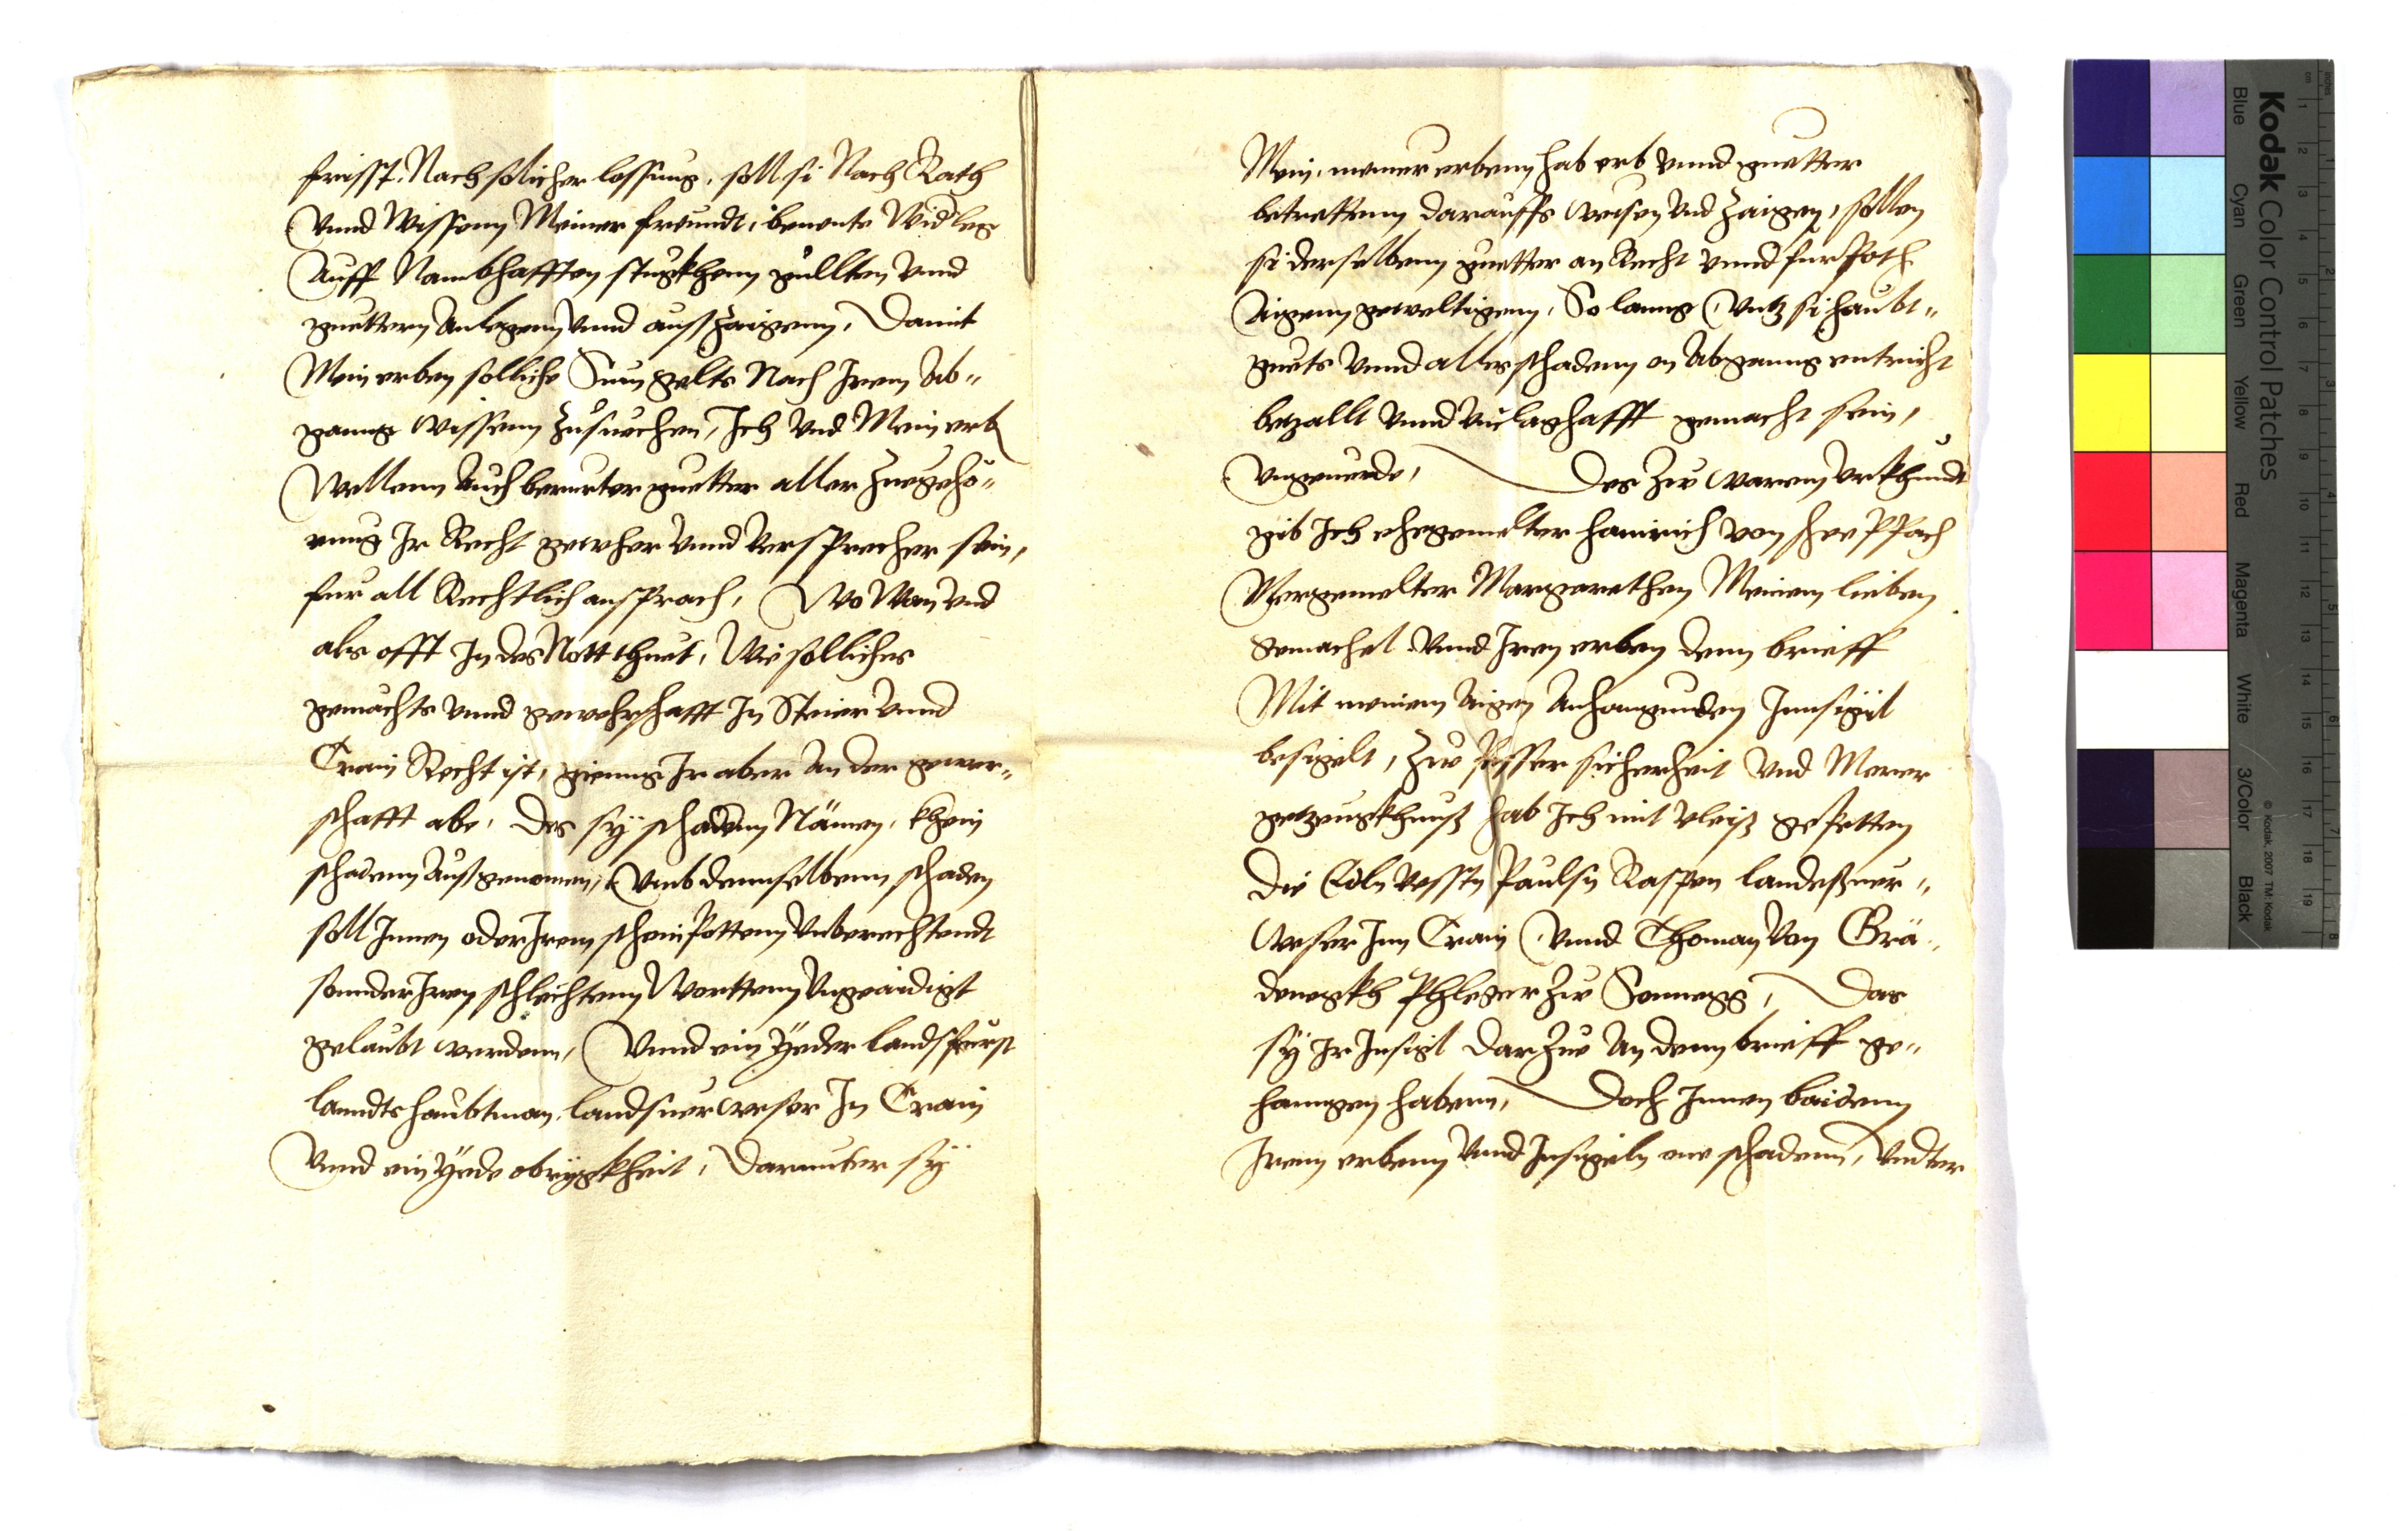 frisst. Nach solicher lossung, soll si Nach Rath
Vnnd Wissenn Meiner freundt, benente Widleg
Auff Nambhafften stugkhenn gullten Vnnd
guettern Anlegenn Vnnd ausszaigenn, Damit
Mein erben solliche Sum gelts Nach Irem Ab-
ganng Wissenn Zusuechen, Ich Vnd Mein erb
Wellenn Auch berurter guetter aller Zuegehö-
rung Ir Recht gewher Vnnd Versprecher sein,
fur all Rechtlich ansprach, Wo Wan Vnd
als offt In des Nott thuet, Wie solliches
gemächts Vnnd gewehrschafft In Steier Vnnd
Crain Recht ist, gienng Ir aber An der gewer-
schafft abe, Des sy schadenn Nämen, khein
schadenn Aussgenomen, Vmb dennselbenn schaden
soll Innen oder Irem scheinpottenn Vnberechtendt
sonnder Iren schlechtenn Worttenn Vngeaidigt
gelaubt werdenn, Vnnd ein Yeder landsfurst
lanndtshaubtman, landsuerweser In Crain
Vnnd ein Yede obrigkheit, Darunter sy
Mein, meiner erbenn hab erb Vnnd guetter
betrettenn darauffs weisen Vnd Zaigen, sollen
si derselbenn guetter an Recht Vnnd furpoth
Aigenn geweltigenn, So lanng Vntz si haubt-
guets Vnnd alles schadenn on Abganng entricht
betzallt Vnnd Vnclaghafft gemacht sein,
Vngeuerde, Des Zw warem Vrkhundt
gib Ich ehegemelter Hainrich von
Vorgemelter Margarethen Meinem lieben
Gemachel Vnnd Iren erben denn brieff
Mit meinem Aigen Anhangunden Innsigil
besigelt, Zw pesser sicherheit Vnd Merer
getzeugkhnuß hab Ich mit Vleiß gepetten
Die Edln Vesstn Paulsn Raspen landeßuer-
weser Inn Crain Vnnd Thoman Von Grä-
denegkh Phleger Zw Sonnegg, Das
sy Ir Insigl Dar Zue An denn brieff ge-
hanngen habenn, Doch Innen baidenn
Irenn erbenn Vnnd Insigeln one schadenn, Vndter